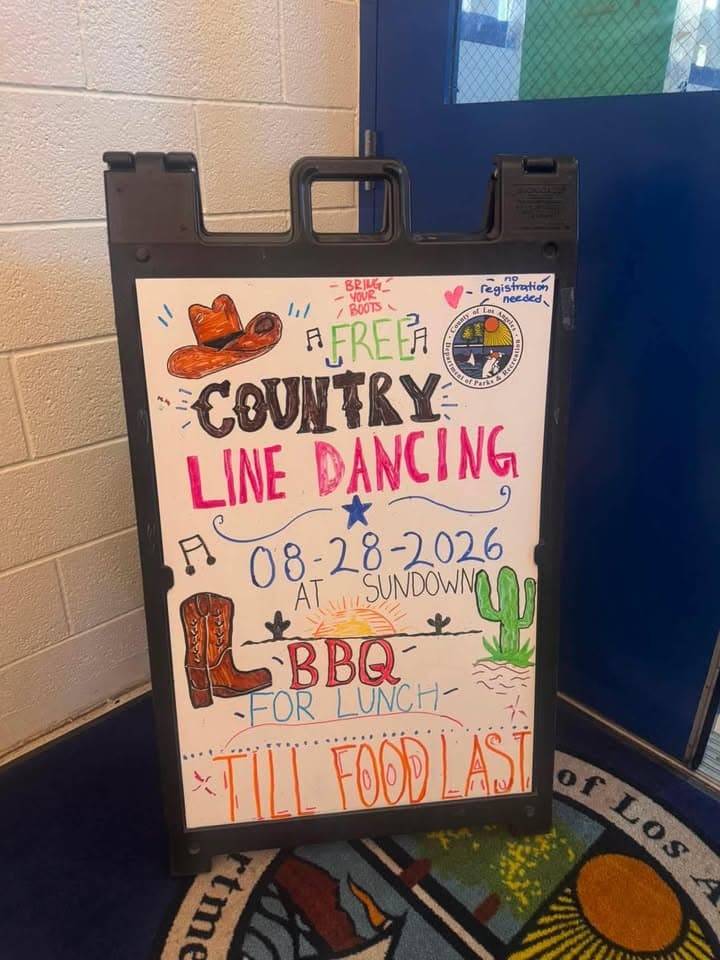 BRING
YOUR
BOOTS
no
registration
needed
FREE
County of Los Angeles
Department of Parks & Recreation
COUNTRY
LINE DANCING
08-28-2026
AT SUNDOWN
BBQ
FOR LUNCH
TILL FOOD LAST
of Los A
rtme